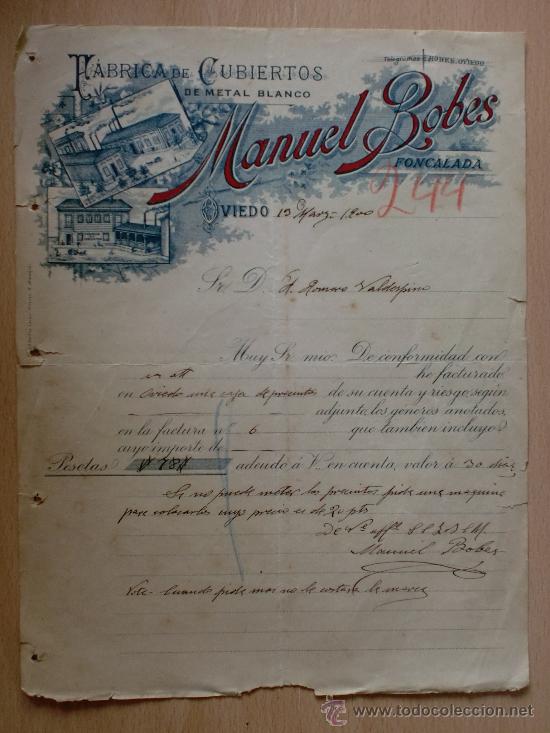 Telegramas: BOBES, OVIEDO
FÁBRICA DE CUBIERTOS
DE METAL BLANCO
Manuel Bobes
FONCALADA
244
OVIEDO 13 Marzo 1900
Sr. D. Romero Valdespino
Muy Sr. mio: De conformidad con
he facturado
en Oviedo una caja de precintos de su cuenta y riesgo, según
adjunto, los géneros anotados,
en la factura n° 6 que tambien incluyo
cuyo importe de
Pesetas adeudo á V. en cuenta, valor á 30 días
Si no puede meter los precintos pida una maquina
para colocarlos cuyo precio es de 20 pts
De Vd
Manuel Bobes
Nota- Cuando pida mas no le costará la marca
todocoleccion
www.todocoleccion.net